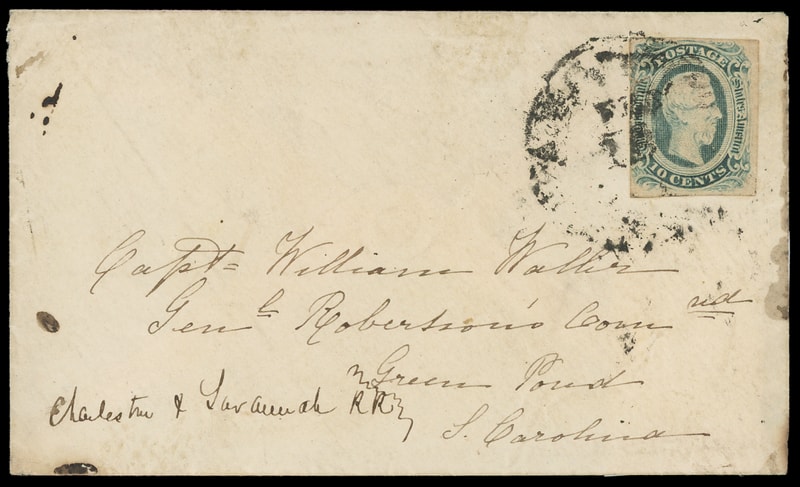 POSTAGE
States America
10 CENTS
Capt= William Waller
Genl Robertson's Comnd
Green Pond
Charleston & Savannah RR
S. Carolina